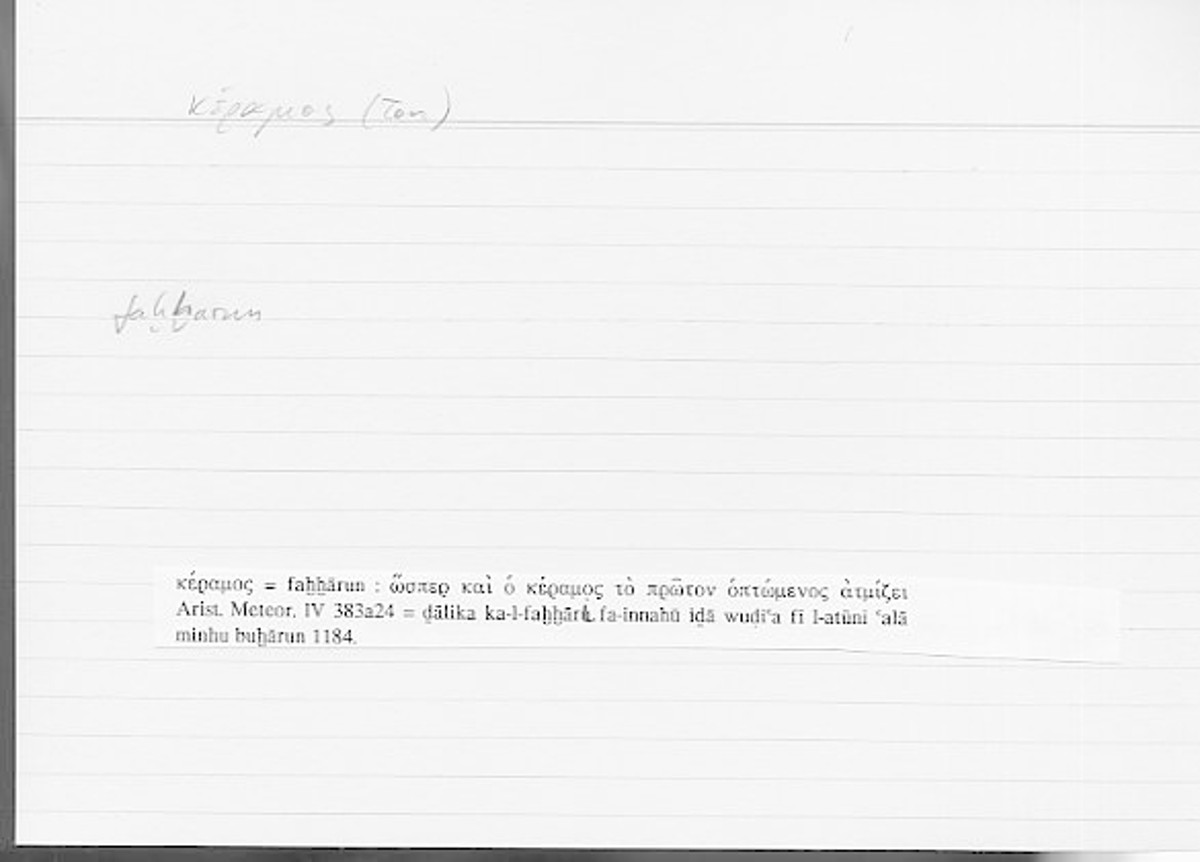 κέραμος (Ton)
faḫḫarun
κέραμος = faḫḫārun : ὥσπερ καὶ ὁ κέραμος τὸ πρῶτον ὀπτώμενος ἀτμίζει
Arist. Meteor. IV 383a24 = ḏālika ka-l-faḫḫāri fa-innahū iḏā wuḍiʿa fī l-atūni ʿalā
minhu buḫārun 1184.